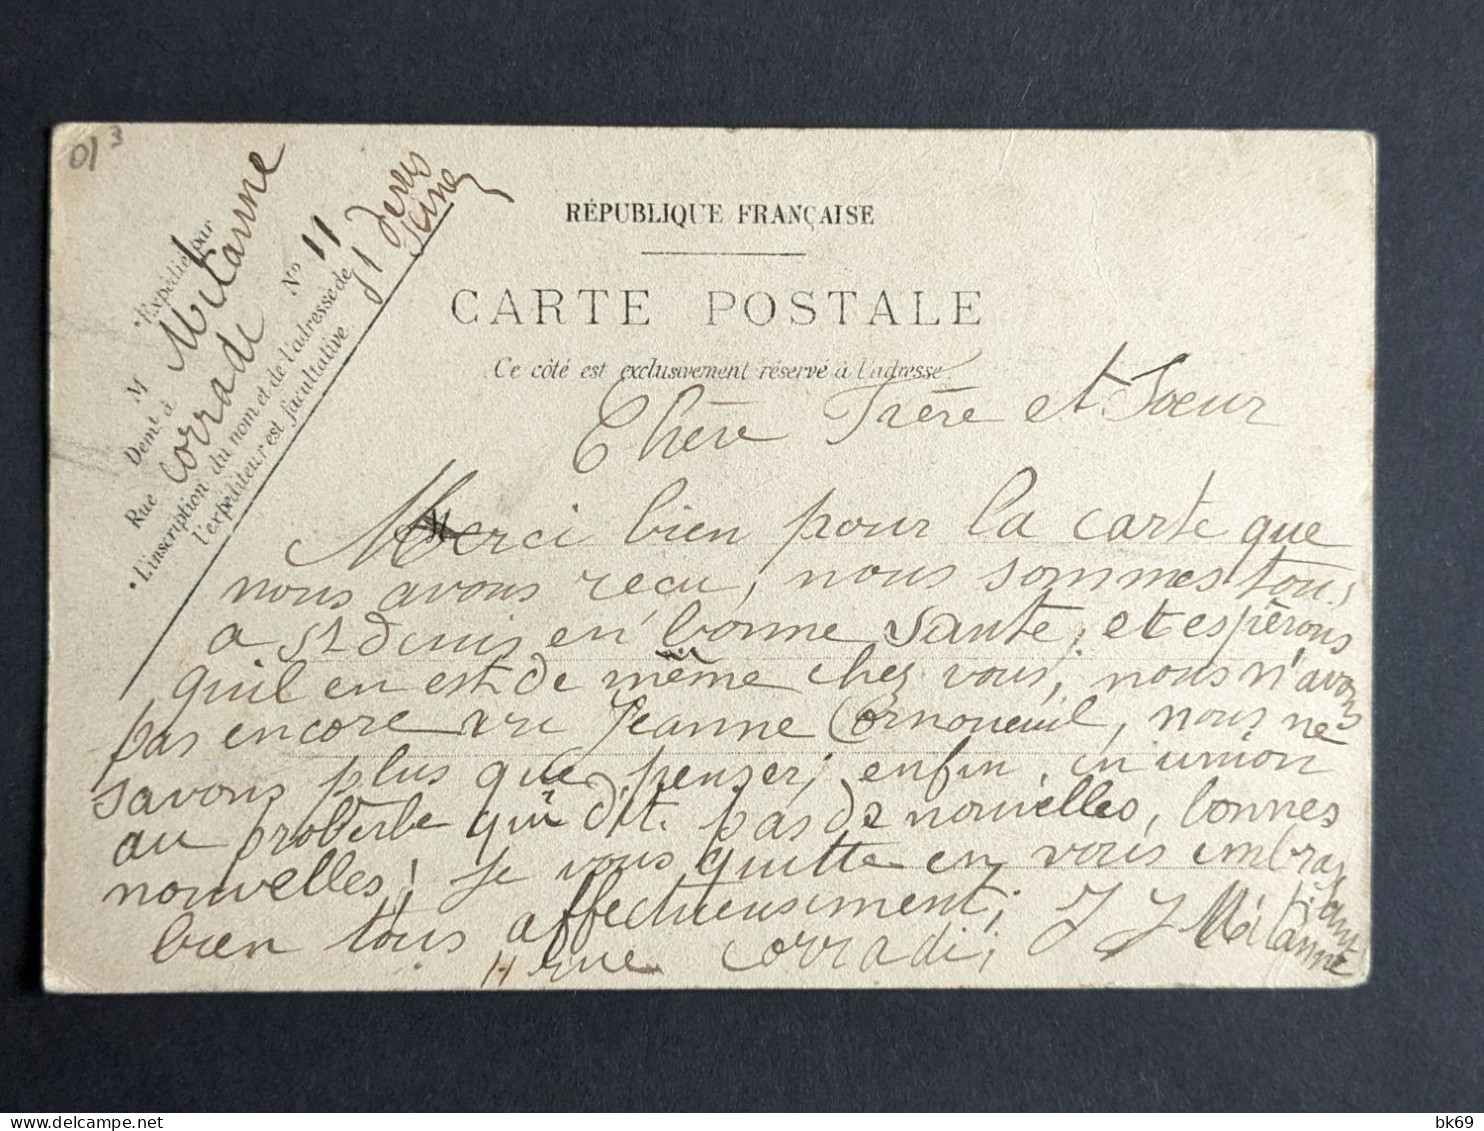 013
Expédié par
M Mitanne
Demt à
Rue Corradi No 11
St Denis
Seine
• L'inscription du nom et de l'adresse de
l'expéditeur est facultative
RÉPUBLIQUE FRANÇAISE
CARTE POSTALE
Ce côté est exclusivement réservé à l'adresse
Chère Frère et Soeur
Merci bien pour la carte que
nous avons recu, nous sommes tous
a St denis en bonne sante, et espèrons
quil en est de même chez vous, nous n'avons
pas encore vu Jeanne Cornoueil, nous ne
savons plus que penser; enfin, en union
au proverbe qui dit. pas de nouvelles, bonnes
nouvelles; je vous quitte en vous embrassant
bien tous affectueusement; J J Mitanne
11 rue Corradi;
delcampe.net
bk69